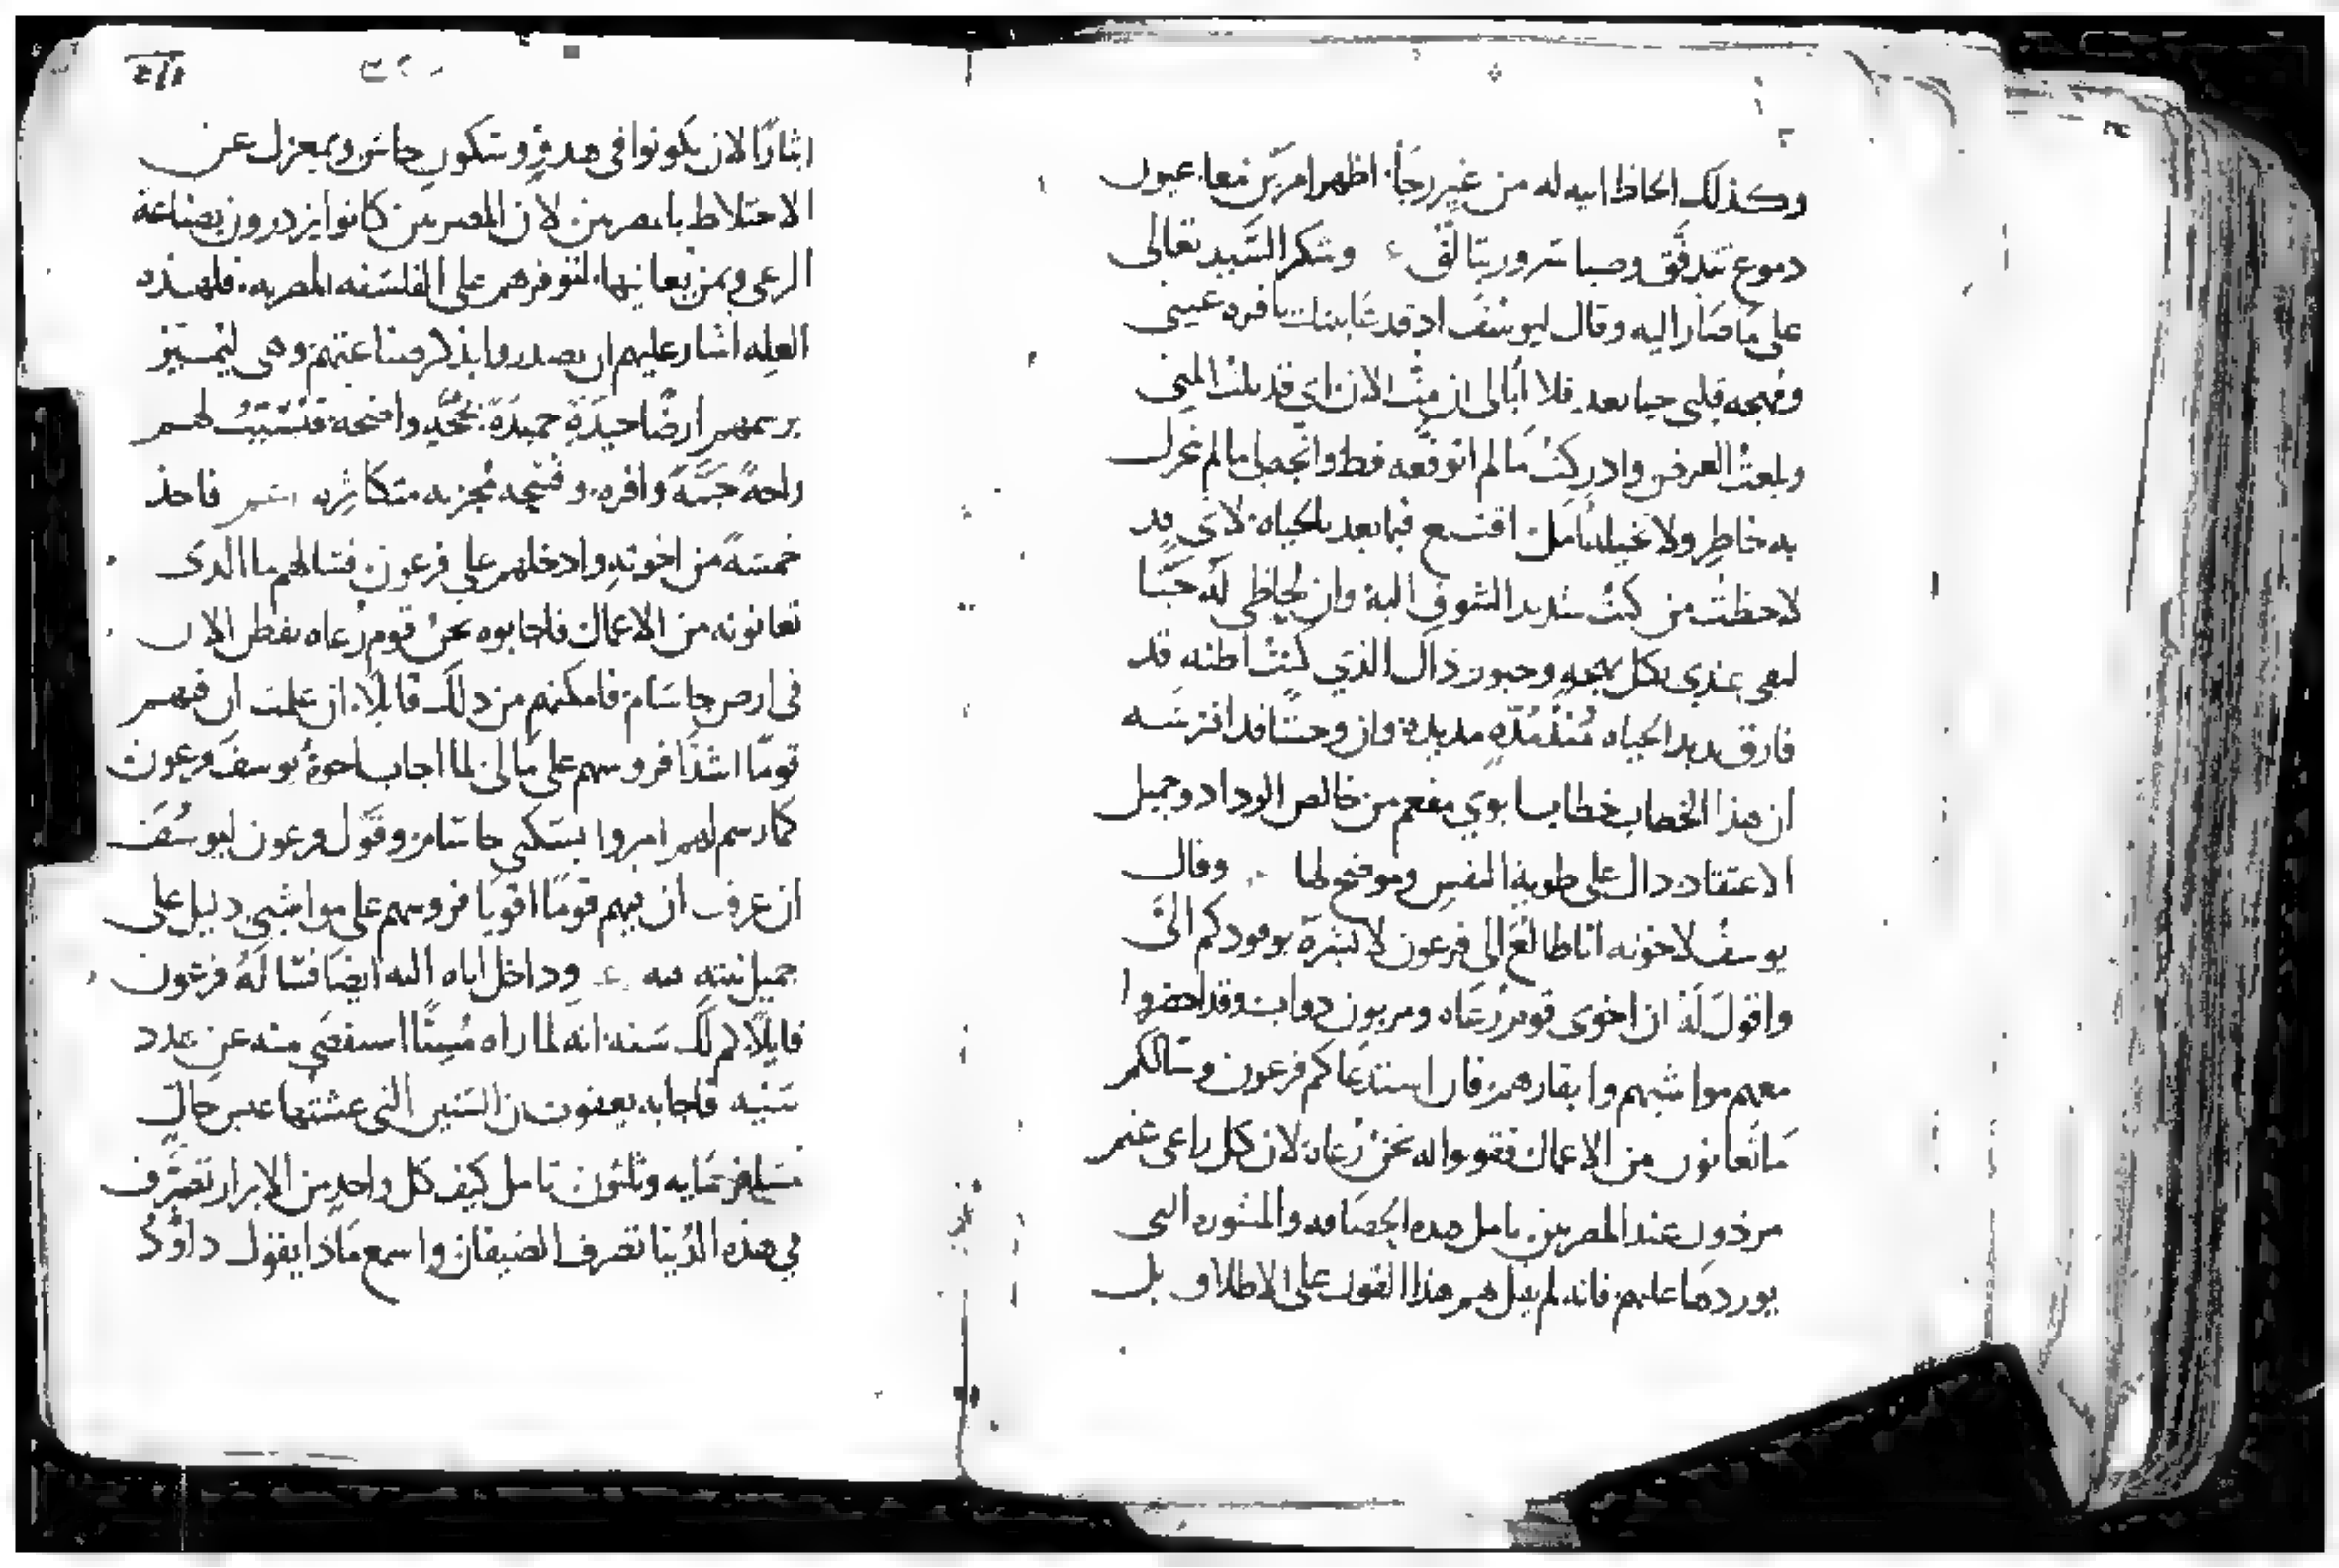 وكذلك الحاظ ابيه له من غير رجأ. اظهر امرين معا. عيون
دموع تتدفق وصبا سرور يتالق وشكر السيد تعالى
على ما صار اليه وقال ليوسف اد قد عاينتك يا قره عيني
ومهجه قلبي حيا بعد. فلا أبالي ان مت الان اي قد بلغت المنى
وبلغت الغرض وادركت ما لم اتوقعه قط واتحصل ما لم يخزل
به خاطر ولا تامل اقتنع فيما بعد بالحياه. لاني قد
لاحظت من كنت شديد الشوق اليه وان لحاظي له حيا
لهي عندي بكل بهجه وحبور ذاك الذي كنت اظنه قد
فارق هذه الحياه منذ مده مديدة وان وحشا قد افترسه
ان هذا الخطاب خطاب ابوي مفعم من خالص الوداد وجميل
الاعتقاد دال على طوية النفس وموضح لها وقال
يوسف لاخوته انا طالع الى فرعون لابشره بوفودكم الى
واقول له ان اخوى قوم رعاه ومربون دواب وقد احضروا
معهم مواشيهم وابقارهم فان استدعاكم فرعون وسالكم
ما تعانون من الاعمال فقولوا له نحن رعاه لان كل راعى غنم
مرذول عند المصريين. تامل هده الحصافه والمشوره التي
يوردها عليهم. فانه لم يقل لهم هذا القول على الاطلاق بل
ايثارًا لان يكونوا في هدو وسكون جاش وبمعزل عن
الاختلاط بالمصريين. لان المصريين كانوا يزدرون بصناعة
الرعي وبمن يعانيها. لتوفرهم على الفلسفه المصريه. فلهذه
العله اشار عليهم ان يصدروا بذكر صناعتهم وهى ليتميز
برسمهم ارضًا جيدة حميدة. بحجه واضحه فتسبب لهم
راحةً جمةً وافره. وفتحه مجزيه متكاثره فاخذ
خمسةً من اخوته وادخلهم على فرعون فسالهم ما الدى
تعانونه من الاعمال فاجابوه نحن قوم رعاه نقطن الان
في ارض جاسام. فامكنهم من دلك قايلاً. ان علمت ان فيهم
قومًا اشدا فروسهم على مالى لما اجاب اخوة يوسف فرعون
كما رسم لهم امروا بسكنى جاسام. وقول فرعون ليوسف
ان عرفت ان فيهم قومًا اقويا فروسهم على مواشي دليل على
جميل نيته فيه وداخل اباه اليه ايضا فسا له فرعون
قايلاً كم لك سنه. انه لما راه مسنًا استقصى منه عن عدد
سنيه فاجابه يعقوب ان السنين التى عشتها على حال
مسافر مايه وثلثون تامل كيف كل واحد من الابرار تصرف
في هذه الدنيا تصرف الضيفان واسمع ماذا يقول داوُدُ